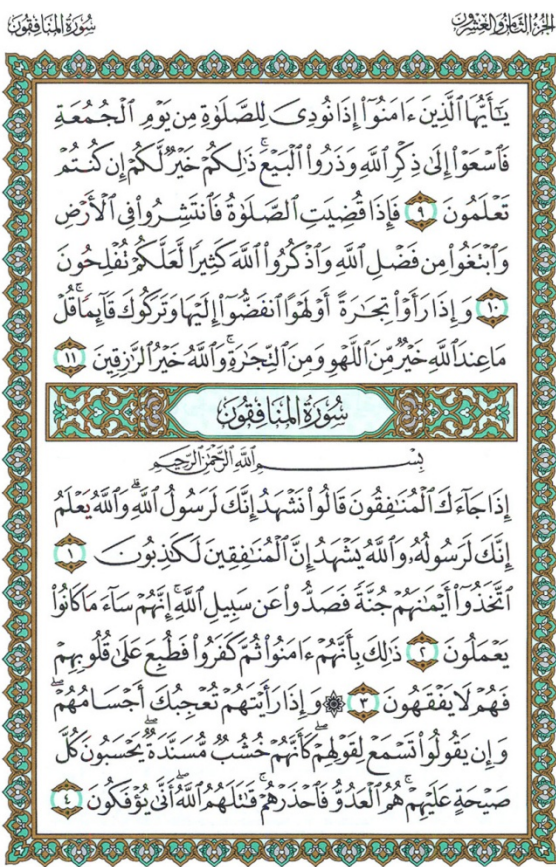 الجزء الثامن والعشرون
سورة المنافقون
يَـٰٓأَيُّهَا ٱلَّذِينَ ءَامَنُوٓا۟ إِذَا نُودِىَ لِلصَّلَوٰةِ مِن يَوْمِ ٱلْجُمُعَةِ
فَٱسْعَوْا۟ إِلَىٰ ذِكْرِ ٱللَّهِ وَذَرُوا۟ ٱلْبَيْعَ ۚ ذَٰلِكُمْ خَيْرٌ لَّكُمْ إِن كُنتُمْ
تَعْلَمُونَ ٩ فَإِذَا قُضِيَتِ ٱلصَّلَوٰةُ فَٱنتَشِرُوا۟ فِى ٱلْأَرْضِ
وَٱبْتَغُوا۟ مِن فَضْلِ ٱللَّهِ وَٱذْكُرُوا۟ ٱللَّهَ كَثِيرًا لَّعَلَّكُمْ تُفْلِحُونَ
١٠ وَإِذَا رَأَوْا۟ تِجَـٰرَةً أَوْ لَهْوًا ٱنفَضُّوٓا۟ إِلَيْهَا وَتَرَكُوكَ قَآئِمًا ۚ قُلْ
مَا عِندَ ٱللَّهِ خَيْرٌ مِّنَ ٱللَّهْوِ وَمِنَ ٱلتِّجَـٰرَةِ ۚ وَٱللَّهُ خَيْرُ ٱلرَّٰزِقِينَ ١١
سُورَةُ المُنَافِقُونَ
بِسْمِ ٱللَّهِ ٱلرَّحْمَـٰنِ ٱلرَّحِيمِ
إِذَا جَآءَكَ ٱلْمُنَـٰفِقُونَ قَالُوا۟ نَشْهَدُ إِنَّكَ لَرَسُولُ ٱللَّهِ ۗ وَٱللَّهُ يَعْلَمُ
إِنَّكَ لَرَسُولُهُۥ وَٱللَّهُ يَشْهَدُ إِنَّ ٱلْمُنَـٰفِقِينَ لَكَـٰذِبُونَ ١
ٱتَّخَذُوٓا۟ أَيْمَـٰنَهُمْ جُنَّةً فَصَدُّوا۟ عَن سَبِيلِ ٱللَّهِ ۚ إِنَّهُمْ سَآءَ مَا كَانُوا۟
يَعْمَلُونَ ٢ ذَٰلِكَ بِأَنَّهُمْ ءَامَنُوا۟ ثُمَّ كَفَرُوا۟ فَطُبِعَ عَلَىٰ قُلُوبِهِمْ
فَهُمْ لَا يَفْقَهُونَ ٣ ۞ وَإِذَا رَأَيْتَهُمْ تُعْجِبُكَ أَجْسَامُهُمْ ۖ
وَإِن يَقُولُوا۟ تَسْمَعْ لِقَوْلِهِمْ ۖ كَأَنَّهُمْ خُشُبٌ مُّسَنَّدَةٌ ۖ يَحْسَبُونَ كُلَّ
صَيْحَةٍ عَلَيْهِمْ ۚ هُمُ ٱلْعَدُوُّ فَٱحْذَرْهُمْ ۚ قَـٰتَلَهُمُ ٱللَّهُ ۖ أَنَّىٰ يُؤْفَكُونَ ٤